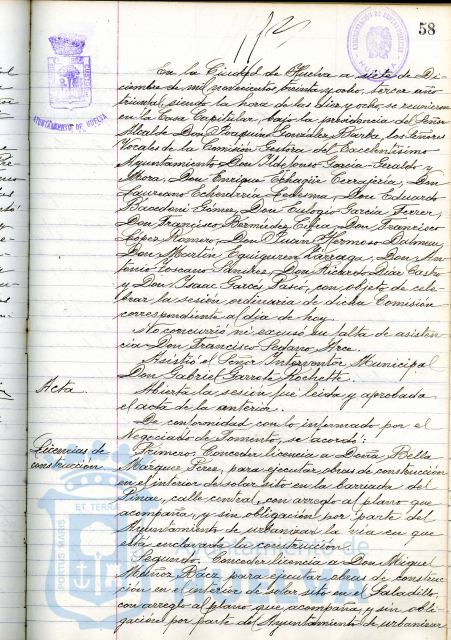 58
AYUNTAMIENTO DE HUELVA
En la Ciudad de Huelva a siete de Di-
ciembre de mil novecientos treinta y ocho, tercer año
triunfal, siendo la hora de las diez y ocho se reunieron
en la Casa Capitular, bajo la presidencia del Señor
Alcalde Don Joaquín González Barba, los Señores
Vocales de la Comisión Gestora del Excelentísimo
Ayuntamiento Don Ildefonso García-Giraldo y
Mora, Don Enrique Echagüe Cerrajería, Don
Laureano Echevarría Ledesma, Don Eduardo
Gómez, Don Eulogio García Ferrer,
Don Francisco Bermúdez Cifra, Don Francisco
López Romero, Don Juan Hermoso Dalmau,
Don Martín Eguiguren Lárraga, Don An-
tonio Toscano Ramírez, Don Ricardo Díaz Castro
y Don Isaac Garcés Pasó, con objeto de cele-
brar la sesión ordinaria de dicha Comisión
correspondiente al día de hoy.
No concurrió ni excusó su falta de asisten-
cia Don Francisco Arce.
Asistió el Señor Interventor Municipal
Don Gabriel Garrote Rochette.
Acta.
Abierta la sesión fué leída y aprobada
el acta de la anterior.
De conformidad con lo informado por el
Negociado de Fomento, se acordó:
Licencias de
construcción
Primero. Conceder licencia a Doña Bella
Márquez Pérez, para ejecutar obras de construcción
en el interior de solar sito en la barriada del
Pinar, calle central, con arreglo al plano que
acompaña, y sin obligación por parte del
Ayuntamiento de urbanizar la vía en que
está enclavada la construcción.
Segundo. Conceder licencia a Don Miguel
Muñoz Báez para ejecutar obras de construc-
ción en el interior de solar sito en el Saladillo,
con arreglo al plano que acompaña, y sin obli-
gación por parte del Ayuntamiento de urbanizar
ET TERRAE
PORTUS MARIS
Ayuntamiento de